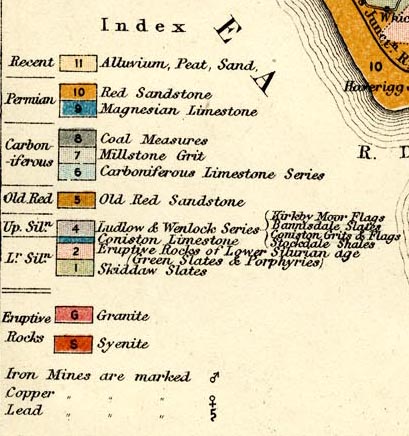 Index
E
A
Recent 11 Alluvium, Peat, Sand,
Permian 10 Red Sandstone
9 Magnesian Limestone
Carbon-iferous 8 Coal Measures
7 Millstone Grit
6 Carboniferous Limestone Series
Old Red 5 Old Red Sandstone
Up. Siln 4 Ludlow & Wenlock Series Kirkby Moor Flags
Bannisdale Slates
Coniston Grits & Flags
Stockdale Shales
Coniston Limestone
Lr. Siln 2 Eruptive Rocks of Lower Silurian age
(Green Slates & Porphyries)
1 Skiddaw Slates
Eruptive Rocks G Granite
S Syenite
Iron Mines are marked ♂
Copper " " " ♀
Lead " " " ♄
10
Haverigg
R. D
Junc.n R.
Whic